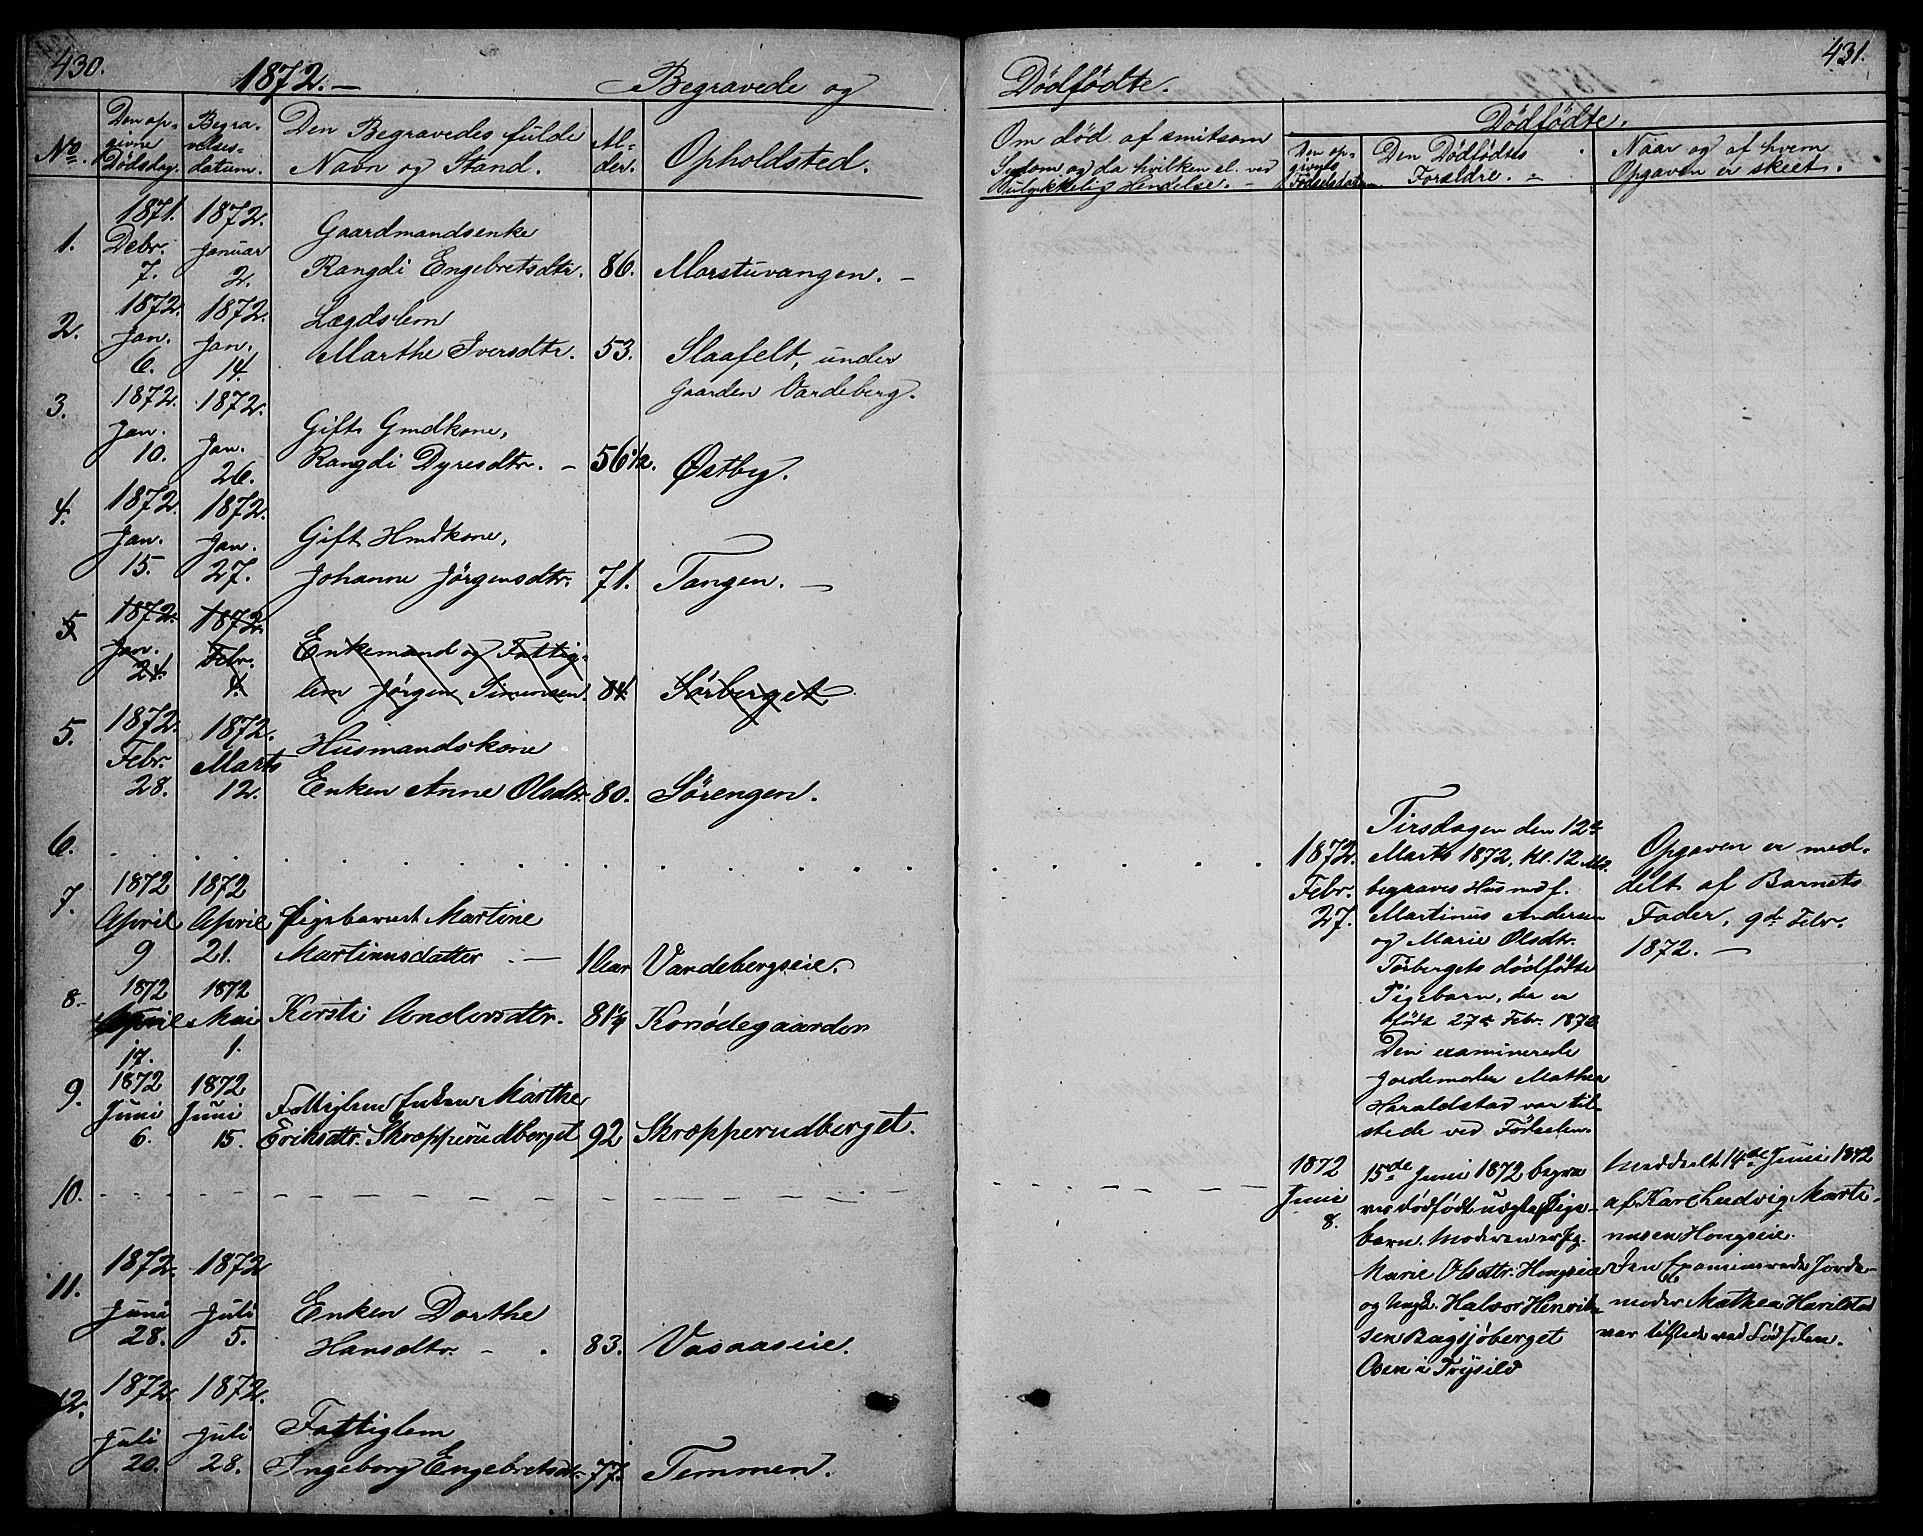 430.
1872. —
Begravede og
No.
Den op-
givne
Dødsdag.
Begra-
velses-
datum.
Den Begravedes fulde
Navn og Stand.
Al-
der.
Opholdsted.
1.
1871.
Debr.
7.
1872.
Januar
2.
Gaardmandsenke
Rangdi Engebretsdtr.
86.
Morstuvangen. —
2.
1872.
Jan.
6.
1872.
Jan.
14.
Lægdslem
Marthe Iversdtr.
53.
Slaafelt, under
Gaarden Vardeberg.
3.
1872.
Jan.
10.
1872.
Jan.
26.
Gift Gmdkone,
Rangdi Dyresdtr. —
56 1/2.
Østby.
4.
1872.
Jan.
15.
1872.
Jan.
27.
Gift Hmdkone,
Johanne Jørgensdtr.
71.
Tangen. —
5
1872.
Jan.
24.
1872.
Febr.
4.
Enkemand og Fattig-
lem Jørgen Simensen
84.
Sørberget
5.
1872.
Febr.
28.
1872.
Marts
12.
Husmandskone
Enken Anne Olsdtr.
80.
Sørengen.
6.
7.
1872
April
9
1872
April
21.
Pigebarnet Martine
Martinusdatter. —
1 Aar
Vardebergseie.
8.
1872
April
17.
1872
Mai
1.
Kersti Andersdtr.
81 1/4
Korsødegaarden
9.
1872
Juni
6.
1872
Juni
15.
Fattiglem Enken Marthe
Eriksdtr. Skræpperudberget
92
Skræpperudberget.
10.
11.
1872.
Juni
28.
1872
Juli
5.
Enken Dorthe
Hansdtr. —
83.
Vasaaseie.
12.
1872.
Juli
20.
1872.
Juli
28.
Fattiglem
Ingeborg Engebretsdtr.
77.
Temmen.
431.
Dødfødte.
Om død af smitsom
Sygdom og da hvilken el. ved
ulykkelig Hendelse. —
Dødfødte.
Den op-
givne
Fødselsdatum
Den Dødfødtes
Forældre. —
Naar og af hvem
Opgaven er skeet.
1872.
Febr.
27.
Tirsdagen den 12te
Marts 1872, Kl. 12 Md.
begraves Husmd f.
Martinus Andersen
og Marie Olsdtr.
Torbergets dødfødte
Pigebarn, der er
født 27de Febr. 1872
Den examinerede
Jordemoder Mathea
Haraldstad var til-
stede ved Fødselen.
Opgaven er med-
delt af Barnets
Fader, 9de Febr.
1872. —
1872
Juni
8.
15de Juni 1872 begra
ves dødfødt uægte Pige-
barn. Moderen er Pg.
Marie Olsdtr. Hongseie
og Ungk. Halvor Henrik-
sen Bægsjøberget
Osen i Trysild
Meddeelt 14de Juni 1872
af Karl Ludvig Marti-
nusen Hongseie.
Den Examinerede Jorde-
moder Mathea Harilstad
var tilstede ved Fødselen.